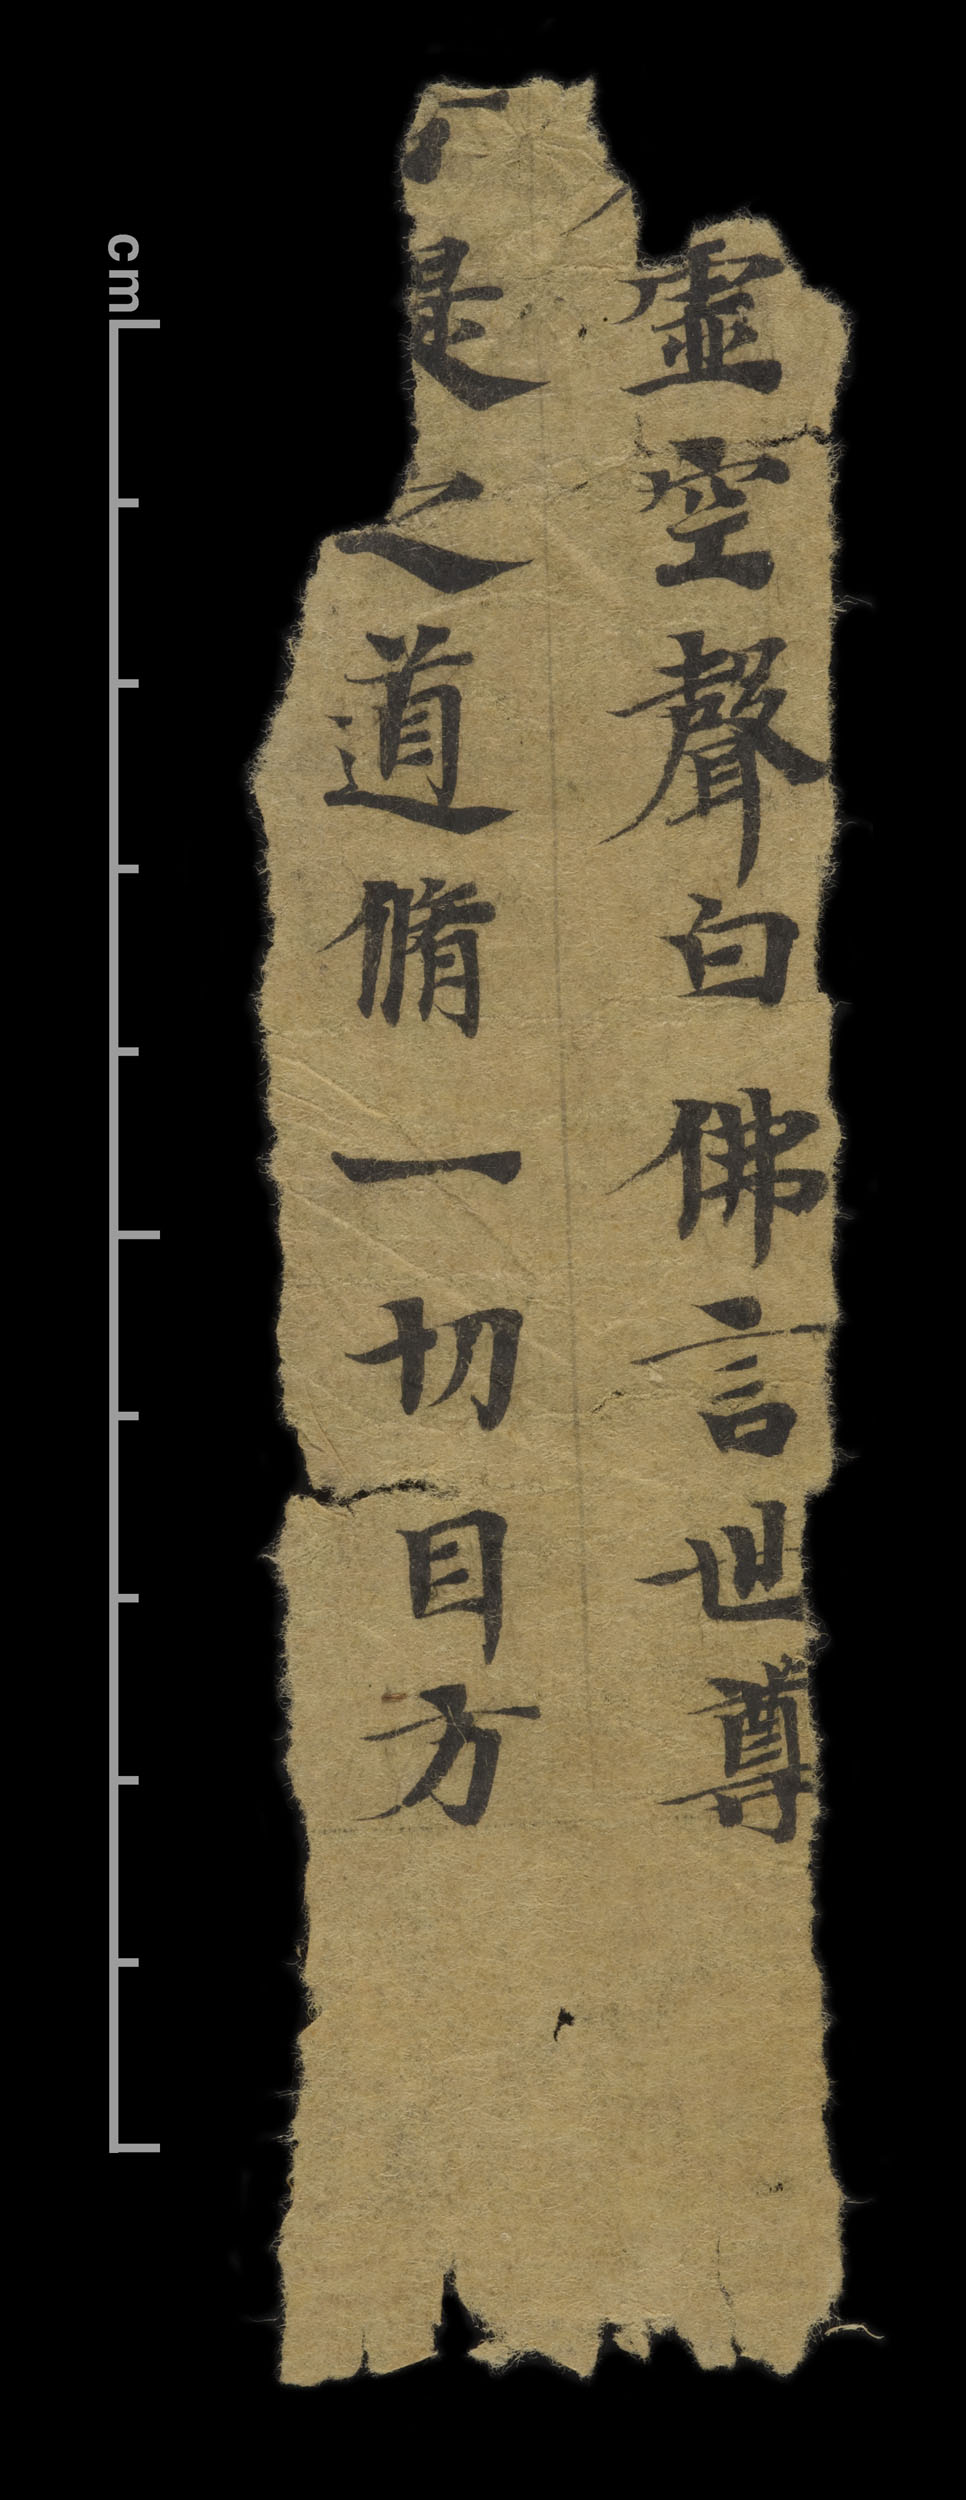 虛空聲白佛言世尊
是之道脩一切目方